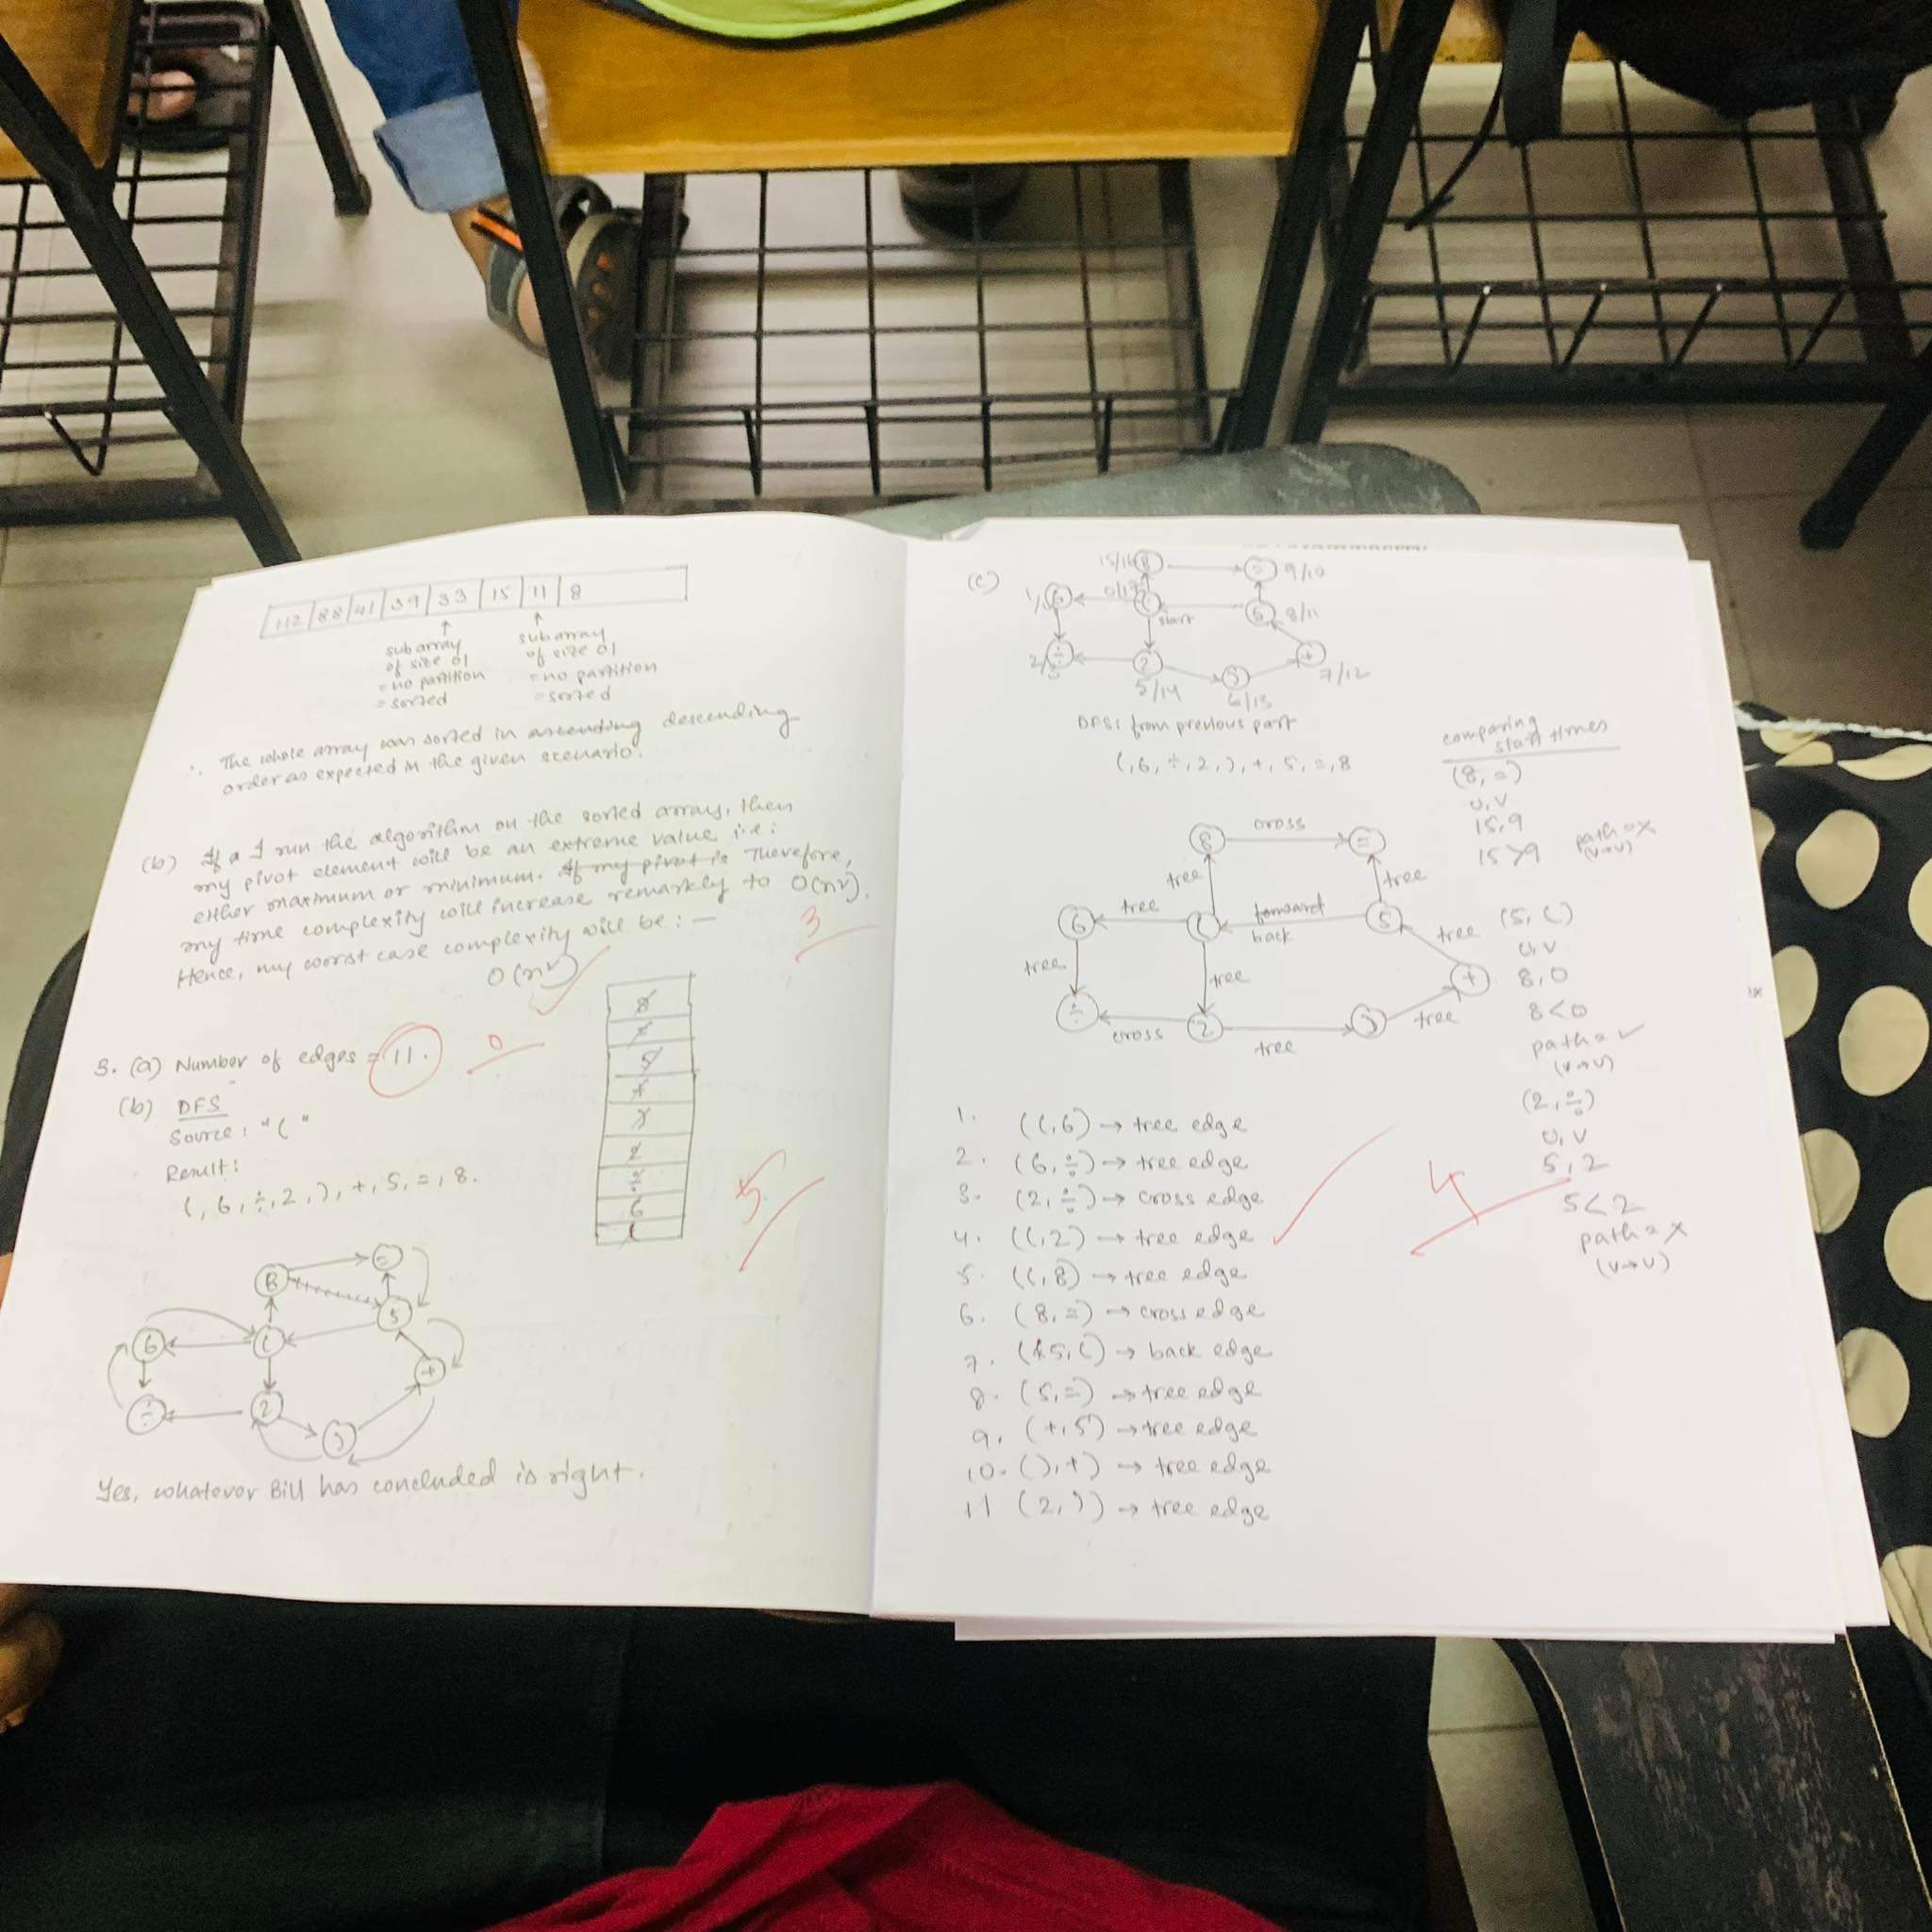 112 88 41 39 33 15 11 8
↑ ↑
subarray
of size 01
= no partition
= sorted
subarray
of size 01
= no partition
= sorted
∴ The whole array was sorted in ascending descending
order as expected in the given scenario.
(b) If a I run the algorithm on the sorted array, then
my pivot element will be an extreme value i.e:
either maximum or minimum. If my pivot is Therefore,
my time complexity will increase remarkly to O(n²).
Hence, my worst case complexity will be : —
O(n²)
3
3. (a) Number of edges = 11.
0
(b) DFS
Source: "("
Result:
(, 6, ÷, 2, ), +, 5, =, 8.
8
=
5
+
)
2
÷
6
(
5
8 =
5
6 (
+
÷ 2
)
Yes, whatever Bill has concluded is right.
(c)
15/16 8 = 9/10
6 ( 5 8/11
start
÷ 2 ) +
5/14 6/13 7/12
DFS: from previous part
(, 6, ÷, 2, ), +, 5, =, 8
comparing
start times
(8, =)
u, v
15, 9
15 > 9
path = x
(v→u)
8 cross =
tree tree
6 tree ( forward 5
back
tree tree tree
+
÷ cross 2 tree ) tree
(5, ()
u, v
8, 0
8 < 0
path = ✓
(v→u)
(2, ÷)
u, v
5, 2
5 < 2
path = x
(v→u)
1. ((, 6) → tree edge
2. (6, ÷) → tree edge
3. (2, ÷) → cross edge
4. ((, 2) → tree edge
5. ((, 8) → tree edge
6. (8, =) → cross edge
7. (5, () → back edge
8. (5, =) → tree edge
9. (+, 5) → tree edge
10. (), +) → tree edge
11 (2, )) → tree edge
4